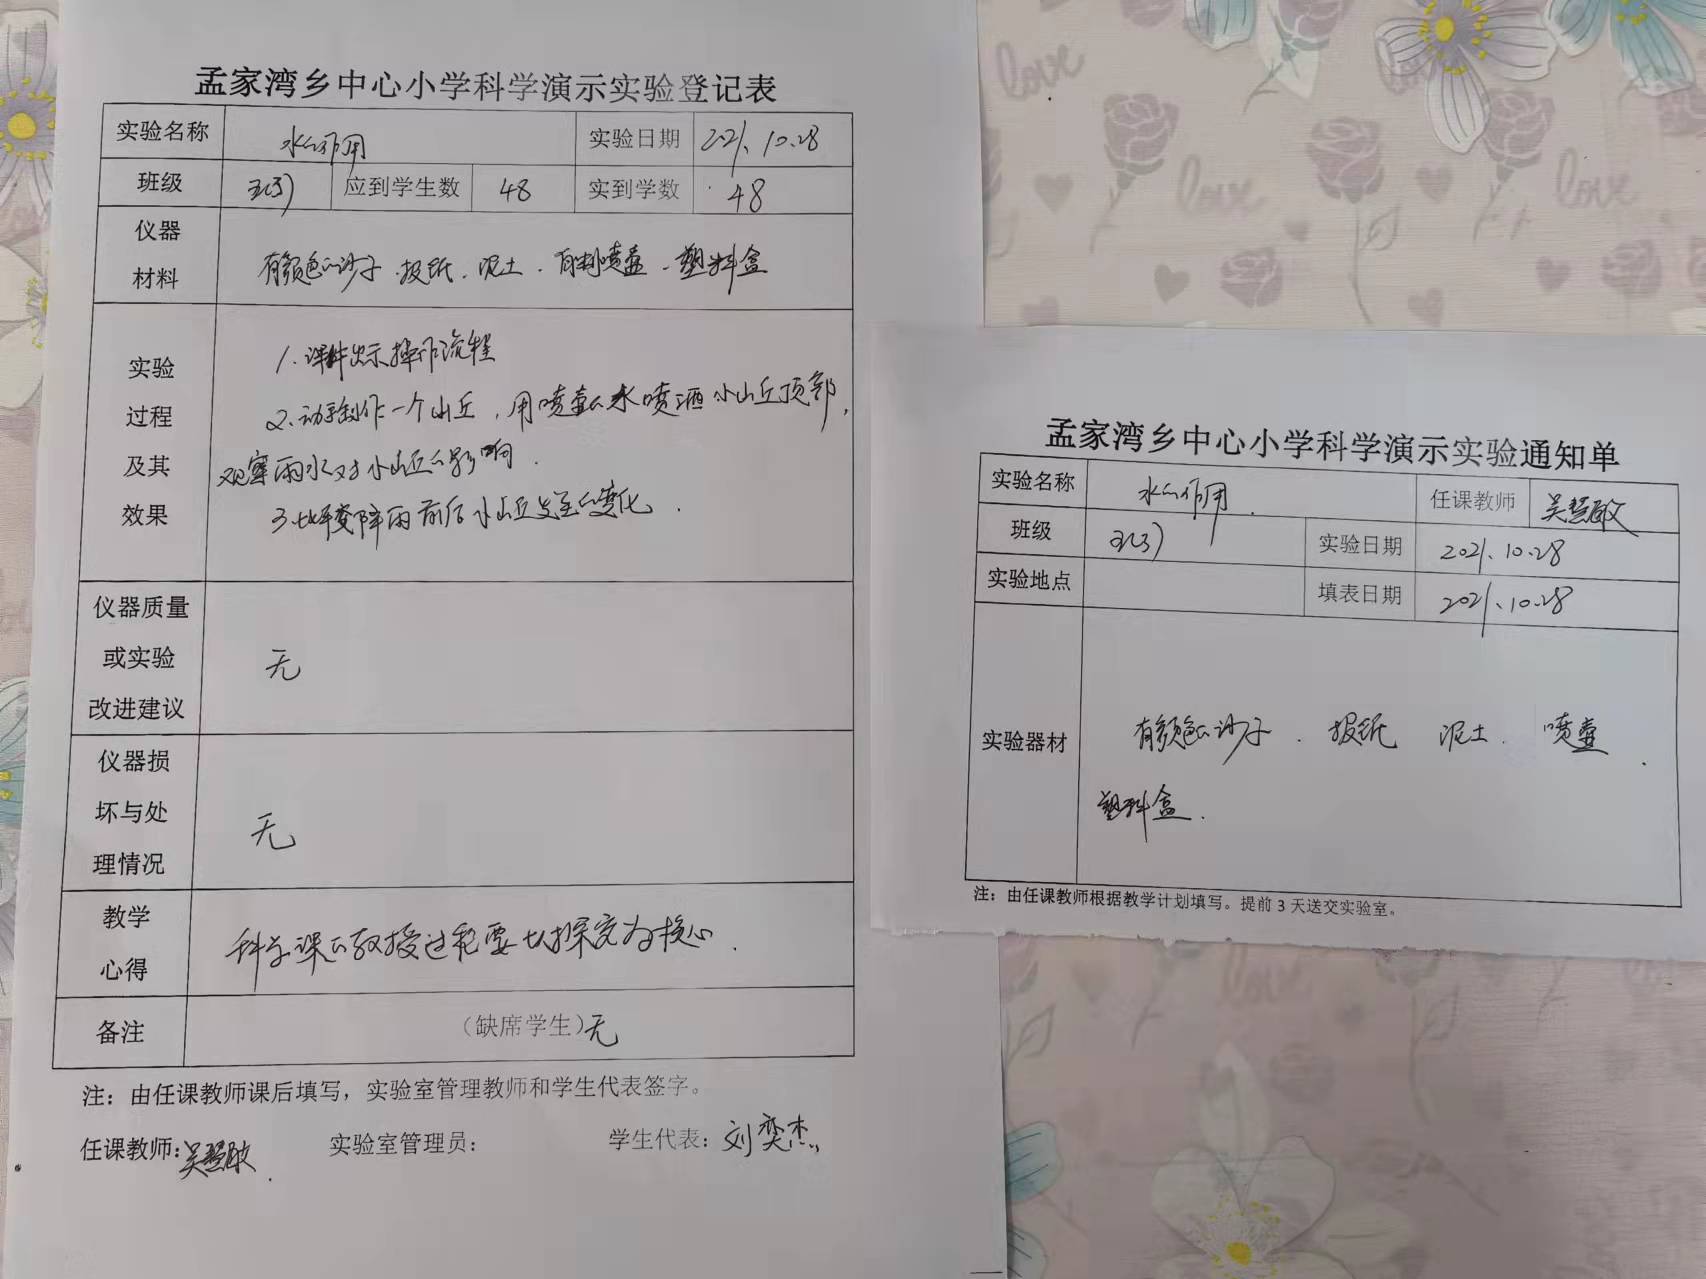 孟家湾乡中心小学科学演示实验登记表
实验名称 水的作用 实验日期 2021.10.28
班级 五(3) 应到学生数 48 实到学数 48
仪器
材料
有颜色的沙子、报纸、泥土、自制喷壶、塑料盒
实验
过程
及其
效果
1.课件出示操作流程
2.动手制作一个山丘，用喷壶的水喷洒小山丘顶部，
观察雨水对小山丘的影响.
3.比较降雨前后小山丘发生的变化.
仪器质量
或实验
改进建议
无
仪器损
坏与处
理情况
无
教学
心得
科学课的教授过程要以探究为核心.
备注 (缺席学生)无
注：由任课教师课后填写，实验室管理教师和学生代表签字。
任课教师:吴慧敏 实验室管理员: 学生代表: 刘奕杰
孟家湾乡中心小学科学演示实验通知单
实验名称 水的作用 任课教师 吴慧敏
班级 五(3) 实验日期 2021.10.28
实验地点 填表日期 2021.10.28
实验器材
有颜色的沙子、报纸 泥土、喷壶
塑料盒.
注：由任课教师根据教学计划填写。提前3天送交实验室。
love
love
love
love